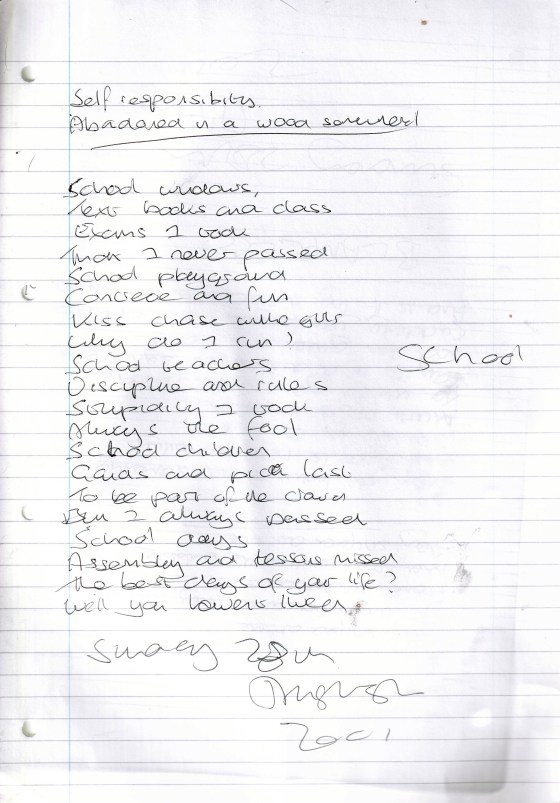 Self responsibity.
Abadoned in a wood somewhere
School windows,
Text books and class
Exams I took
That I never passed
School playground
Concrete and fun
Kiss chase with girls
Why do I run?
School
School teachers
Discipline and rules
Stupidity I took
Always the fool
School children
Gangs and picked last
To be part of the crowd
But I always passed
School days
Assembley and lessons missed
The best days of your life?
Well you
Sunday 28th
2001